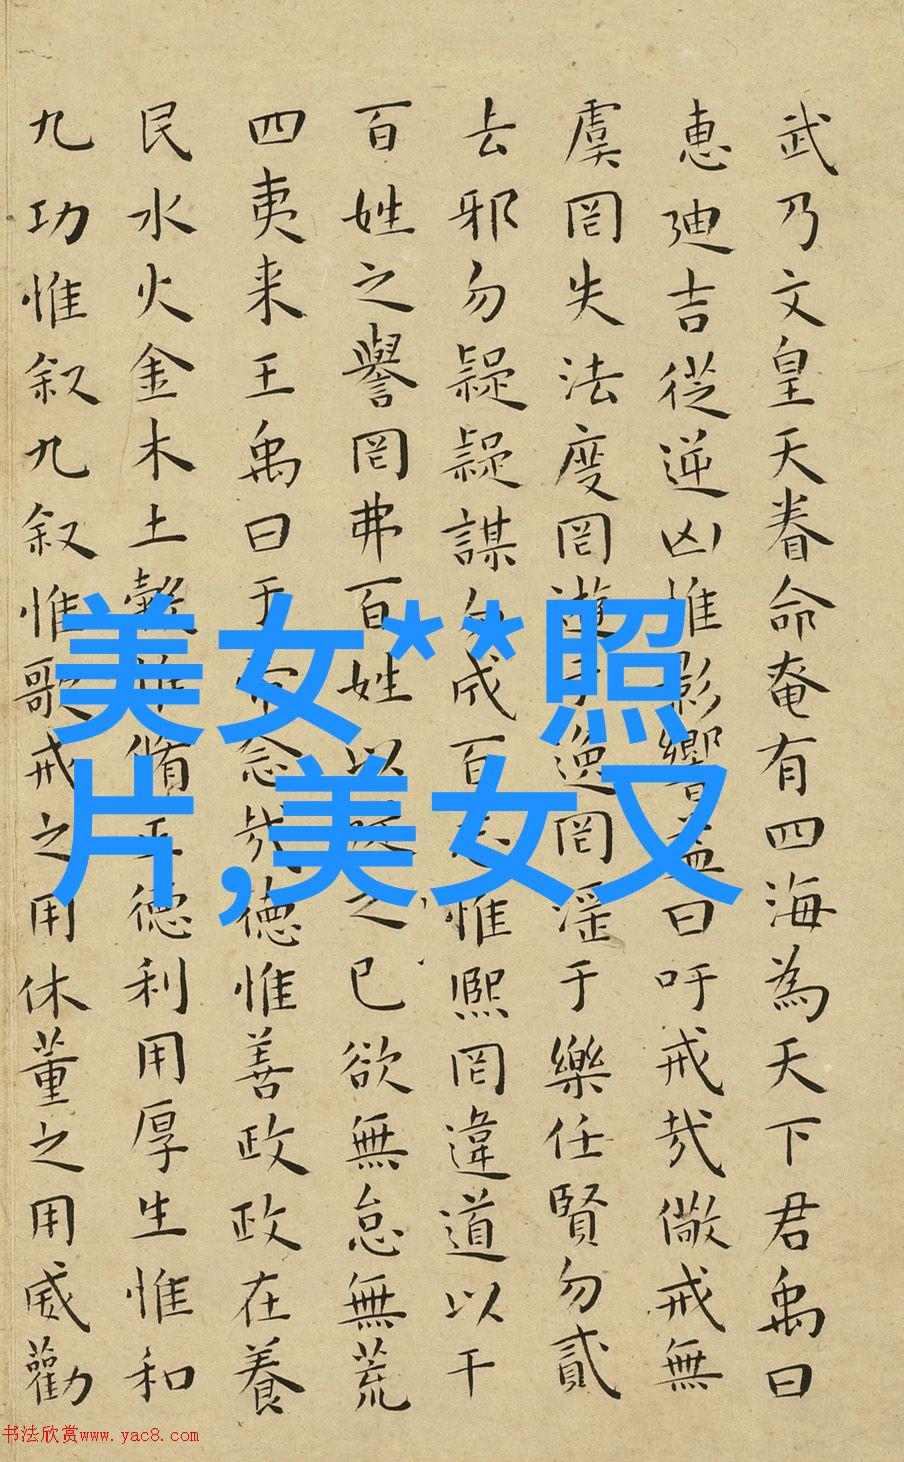 武乃文皇天眷命奄有四海為天下君禹曰
惠迪吉從逆凶惟影響益曰吁戒哉儆戒無
虞罔失法度罔遊于逸罔淫于樂任賢勿貳
去邪勿疑疑謀勿成百志惟熙罔違道以干
百姓之譽罔咈百姓以從之已欲無怠無荒
四夷来王禹曰於帝念哉德惟善政政在養
民水火金木土穀惟脩正德利用厚生惟和
九功惟叙九叙惟歌戒之用休董之用威勸
美女**照
片,美女又
书法欣赏www.yac8.com